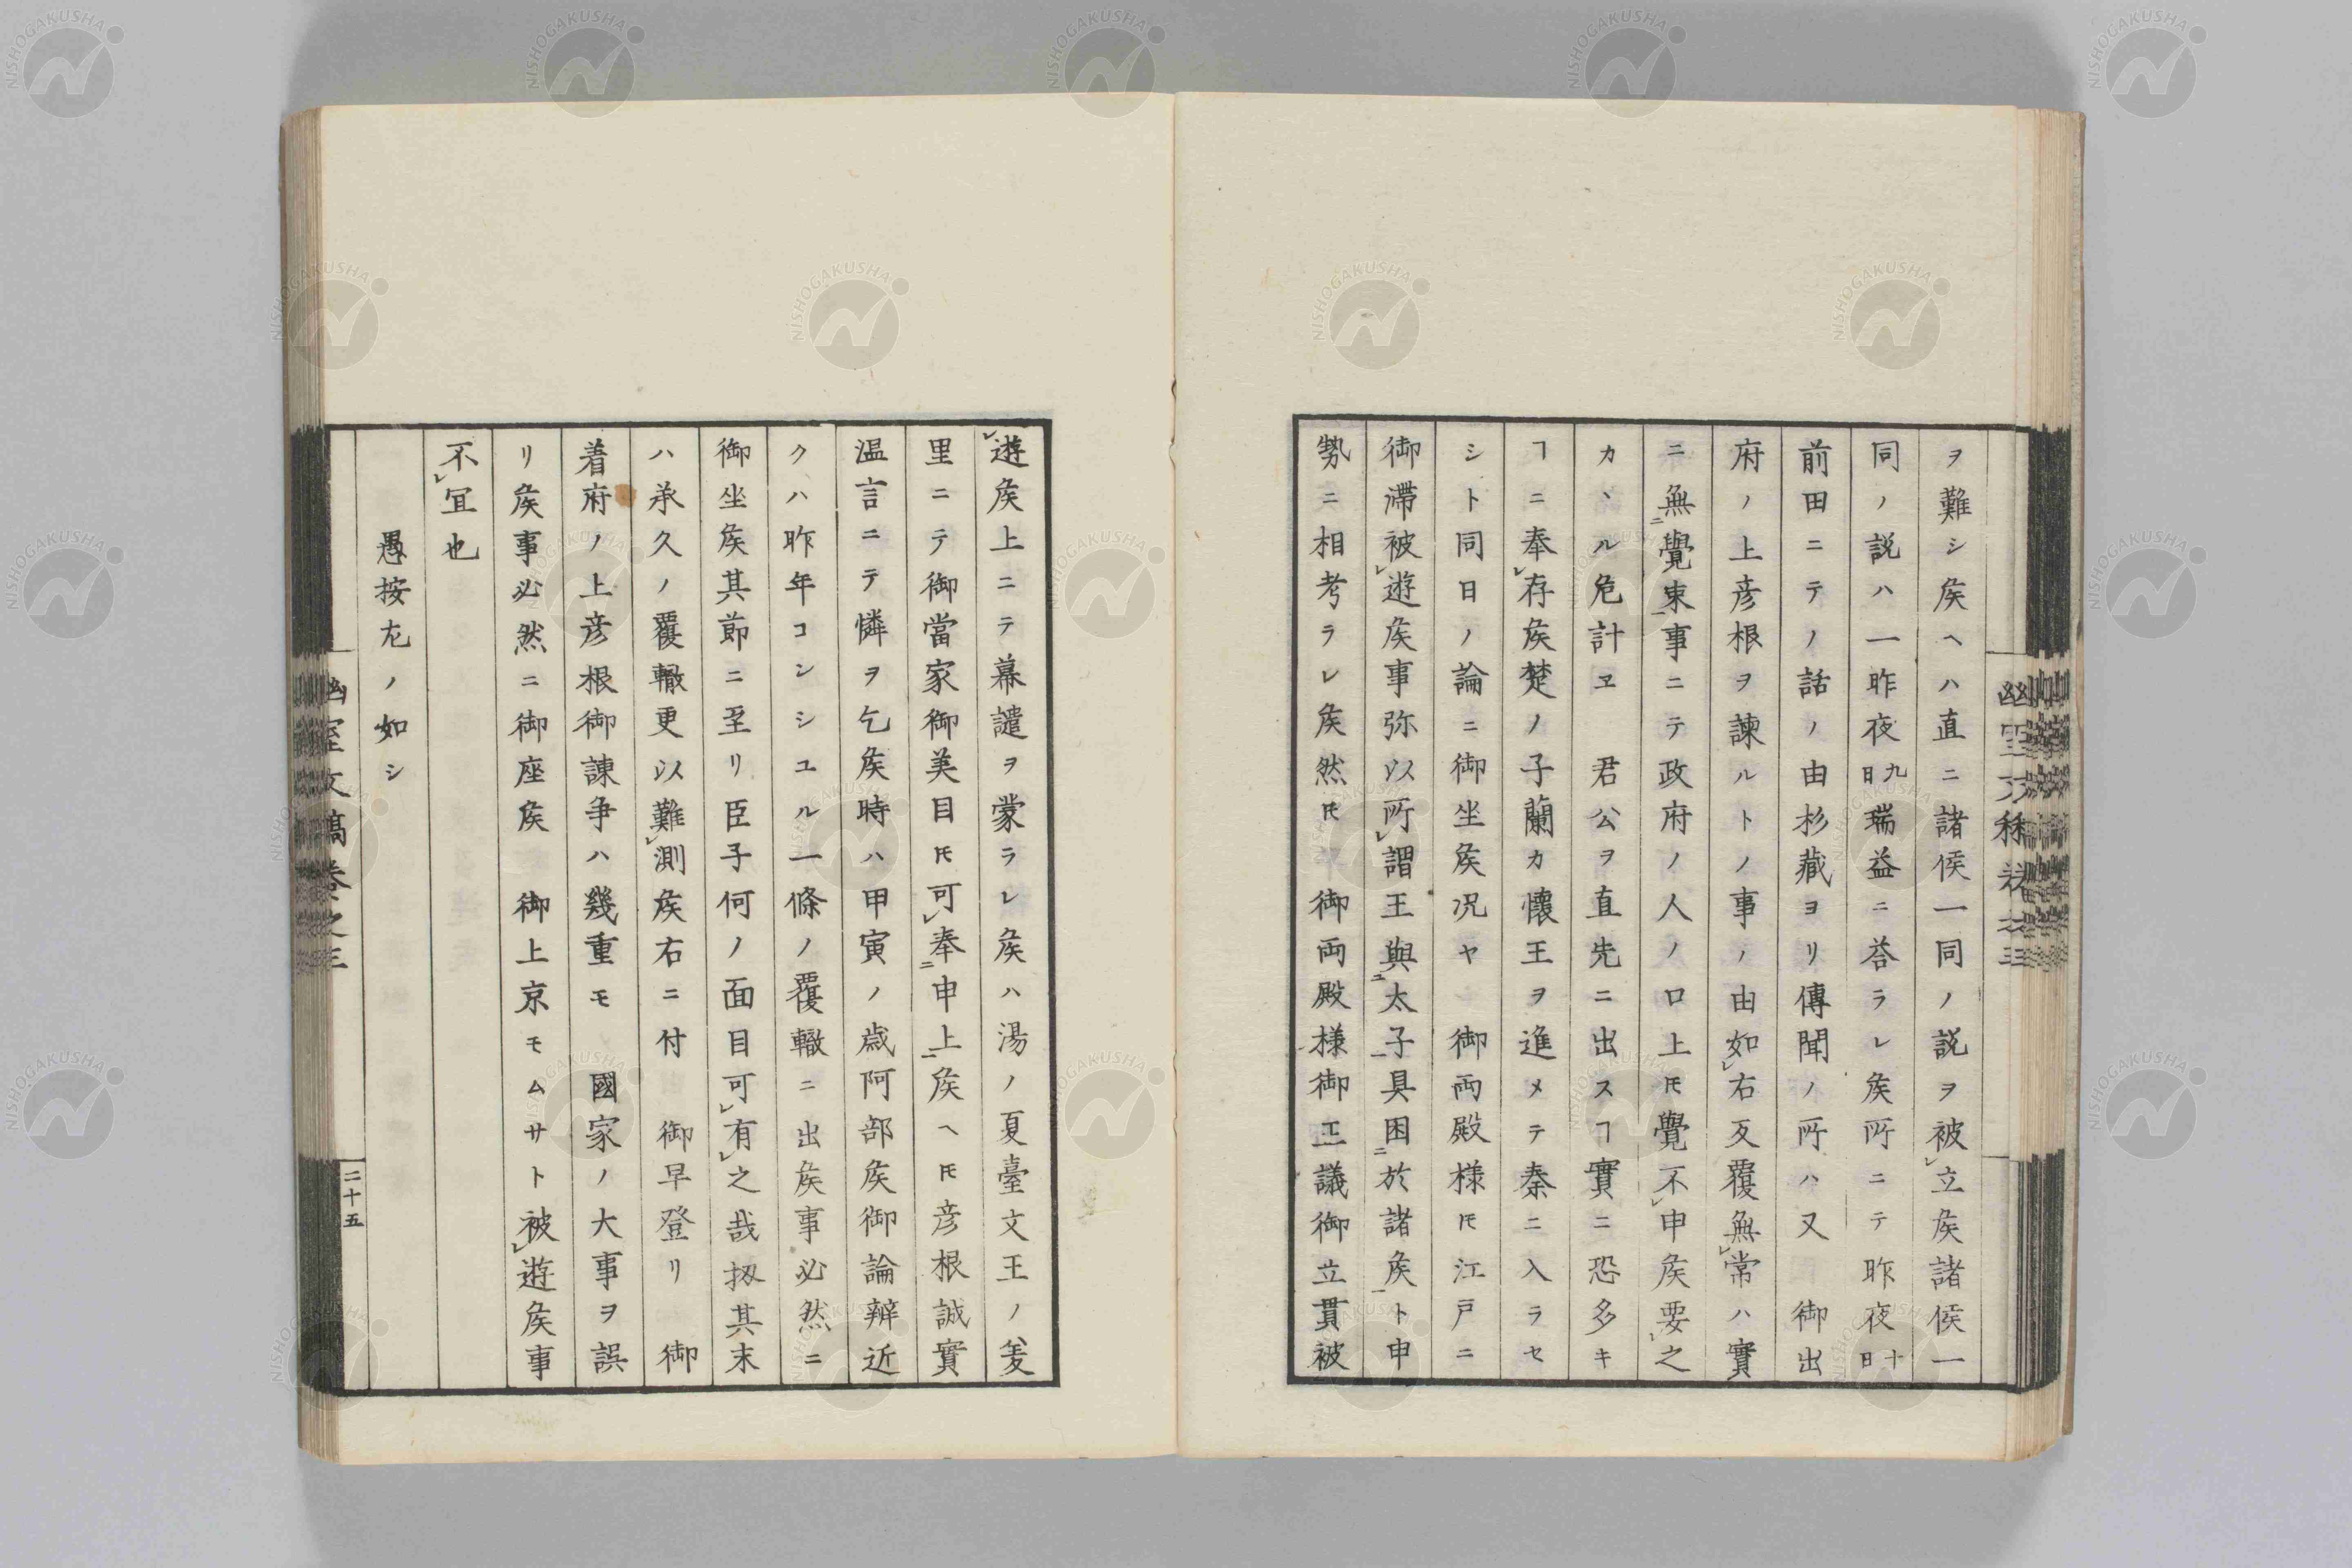 ヲ難シ矦ヘハ直ニ諸侯一同ノ説ヲ被レ立矦諸侯一
同ノ説ハ一昨夜九日瑞益ニ荅ラレ矦所ニテ昨夜十日
前田ニテノ話ノ由杉藏ヨリ傳聞ノ所ハ又 御出
府ノ上彦根ヲ諫ルトノ事ノ由如レ右反覆無レ常ハ實
ニ無二覺束一事ニテ政府ノ人ノ口上𪜈覺不レ申矦要レ之
カヽル危計ヱ 君公ヲ直先ニ出スヿ實ニ恐多キ
ヿニ奉レ存矦楚ノ子蘭カ懷王ヲ進メテ秦ニ入ラセ
シト同日ノ論ニ御坐矦况ヤ 御両殿様𪜈江戸ニ
御滯被レ遊矦事弥以所レ謂王與二太子一具困二於諸矦一ト申
勢ニ相考ラレ矦然𪜈 御両殿様御工議御立貫被
レ遊矦上ニテ幕譴ヲ蒙ラレ矦ハ湯ノ夏臺文王ノ羑
里ニテ御當家御美目𪜈可レ奉二申上一矦ヘ𪜈彦根誠實
温言ニテ憐ヲ乞矦時ハ甲寅ノ歳阿部矦御論辨近
クハ昨年コシシユル一條ノ覆轍ニ出矦事必然ニ
御坐矦其節ニ至リ臣子何ノ面目可レ有レ之哉扨其末
ハ承久ノ覆轍更以難レ測矦右ニ付 御早登リ 御
着府ノ上彦根御諌争ハ幾重モ 國家ノ大事ヲ誤
リ矦事必然ニ御座矦 御上京モムサト被レ遊矦事
不レ宜也
愚按左ノ如シ
幽室文稿卷之三
二十五